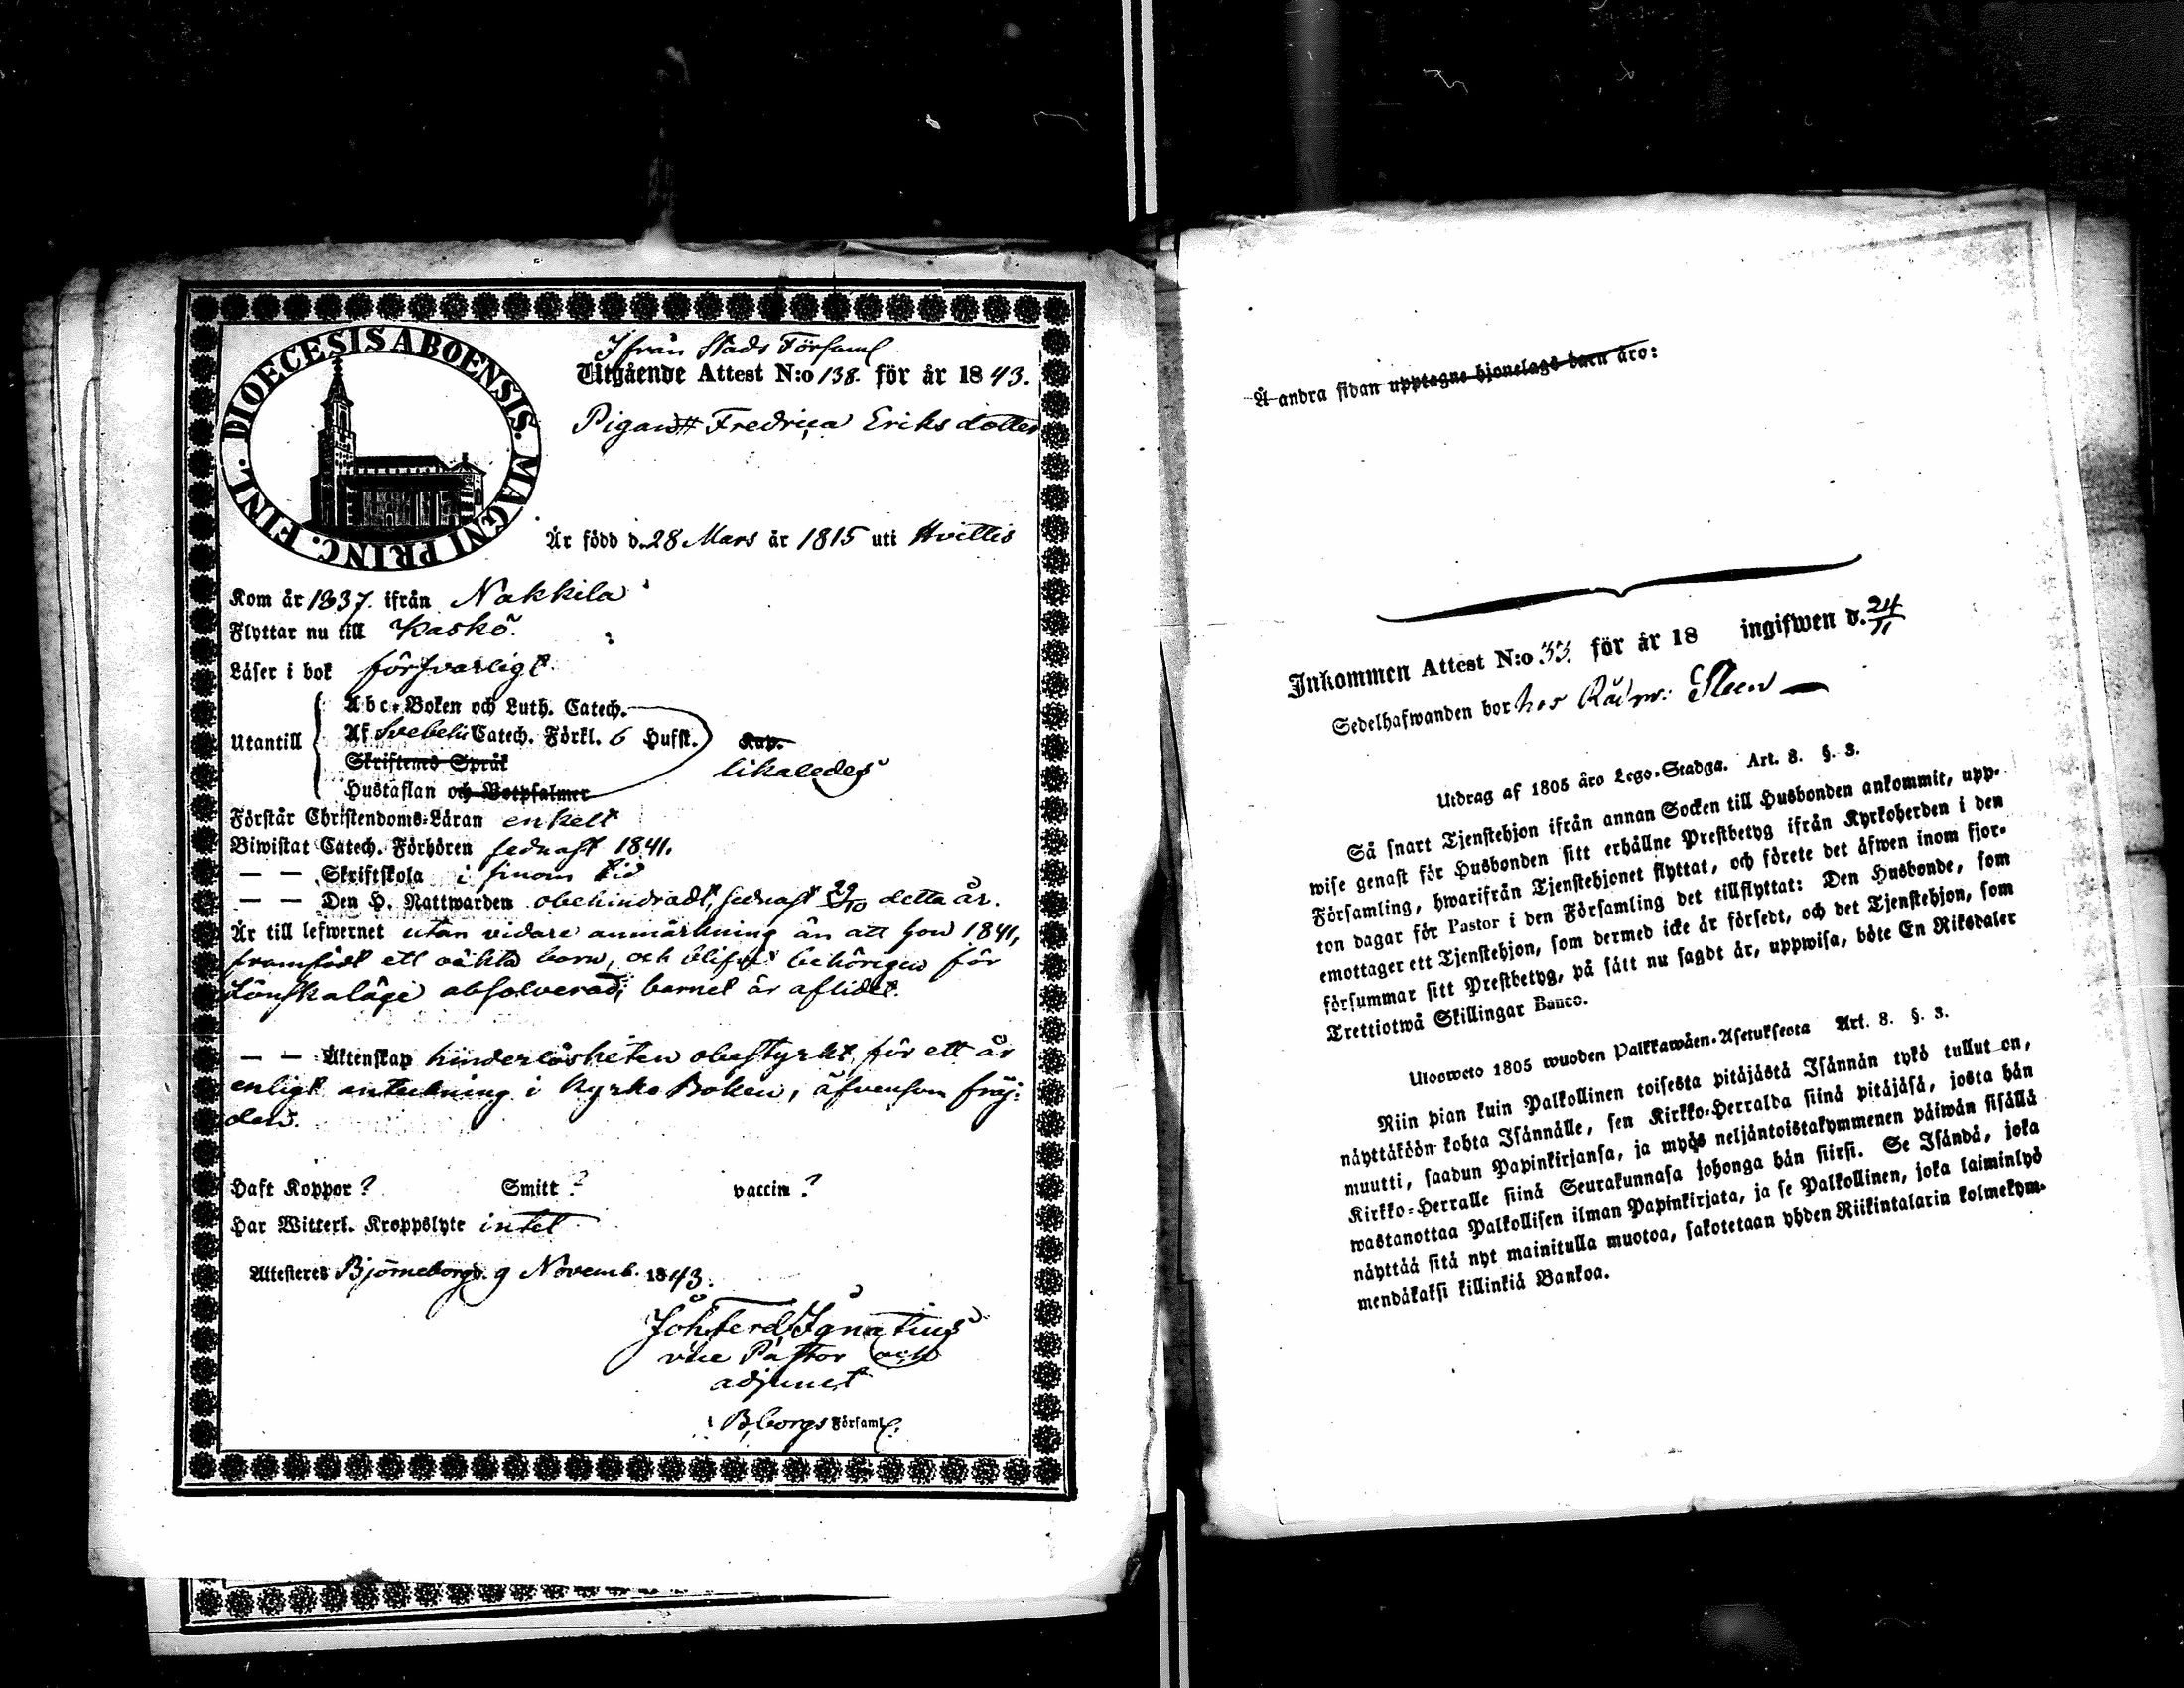 DIOECESIS ABOENSIS. MAGNI PRINC. FINL.
Ifrån Stads Församl
Utgående Attest N:o 138. för år 1843.
Pigan Fredrica Eriksdotter
Är född d. 28 Mars år 1815 uti Hvittis
Kom år 1837. ifrån Nakkila
Flyttar nu till Kaskö.
Läser i bok försvarligt
Utantill
Abc-Boken och Luth. Catech.
Af Svebelii Catech. Förkl. 6 Hufst. Kap.
likaledes
Skriftenes Språk
Hustaflan och Botpsalmer
Förstår Christendoms-Läran enkelt
Biwistat Catech. Förhören sednast 1841.
— — Skriftskola i sinom tid
— — Den H. Nattwarden obehindradt, sednast 29/10 detta år.
Är till lefwernet utan vidare anmärkning än att hon 1841,
framfödt ett oäkta barn, och blifvit behörigen för
Lönskaläge absolverad; barnet är aflidet.
— — Äktenskap hinderlösheten obestyrkt för ett år
enligt anteckning i Kyrko Boken, äfvensom fräj-
den.
Haft Koppor ? Smitt ? vaccin ?
Har Witterl. Kroppslyte intet
Attesteres Björneborg d. 9 Novemb. 1843.
Joh. Ferd. Ignatius
vice Pastor och
adjunct
i B,borgs Församl.
Å andra sidan upptagne hjonelags barn äro:
Inkommen Attest N:o 33. för år 18 ingifwen d. 24/11
Sedelhafwanden bor hos Rådm: Steen
Utdrag af 1805 års Lego-Stadga. Art. 8. §. 3.
Så snart Tjenstehjon ifrån annan Socken till Husbonden ankommit, upp-
wise genast för Husbonden sitt erhållne Prestbetyg ifrån Kyrkoherden i den
Församling, hwarifrån Tjenstehjonet flyttat, och förete det äfwen inom fjor-
ton dagar för Pastor i den Församling det tillflyttat: Den Husbonde, som
emottager ett Tjenstehjon, som dermed icke är försedt, och det Tjenstehjon, som
försummar sitt Prestbetyg, på sätt nu sagdt är, uppwisa, böte En Riksdaler
Trettiotwå Skillingar Banco.
Ulosweto 1805 wuoden Palkkawäen-Asetuksesta Art. 8. §. 3.
Niin pian kuin Palkollinen toisesta pitäjästä Isännän tykö tullut on,
näyttäköön kohta Isännälle, sen Kirkko-Herralda siinä pitäjäsä, josta hän
muutti, saadun Papinkirjansa, ja myös neljäntoistakymmenen päiwän sisällä
Kirkko-Herralle siinä Seurakunnasa johonga hän siirsi. Se Isändä, joka
wastanottaa Palkollisen ilman Papinkirjata, ja se Palkollinen, joka laiminlyö
näyttää sitä nyt mainitulla muotoa, sakotetaan yhden Riikintalarin kolmekym-
mendäkaksi killinkiä Bankoa.